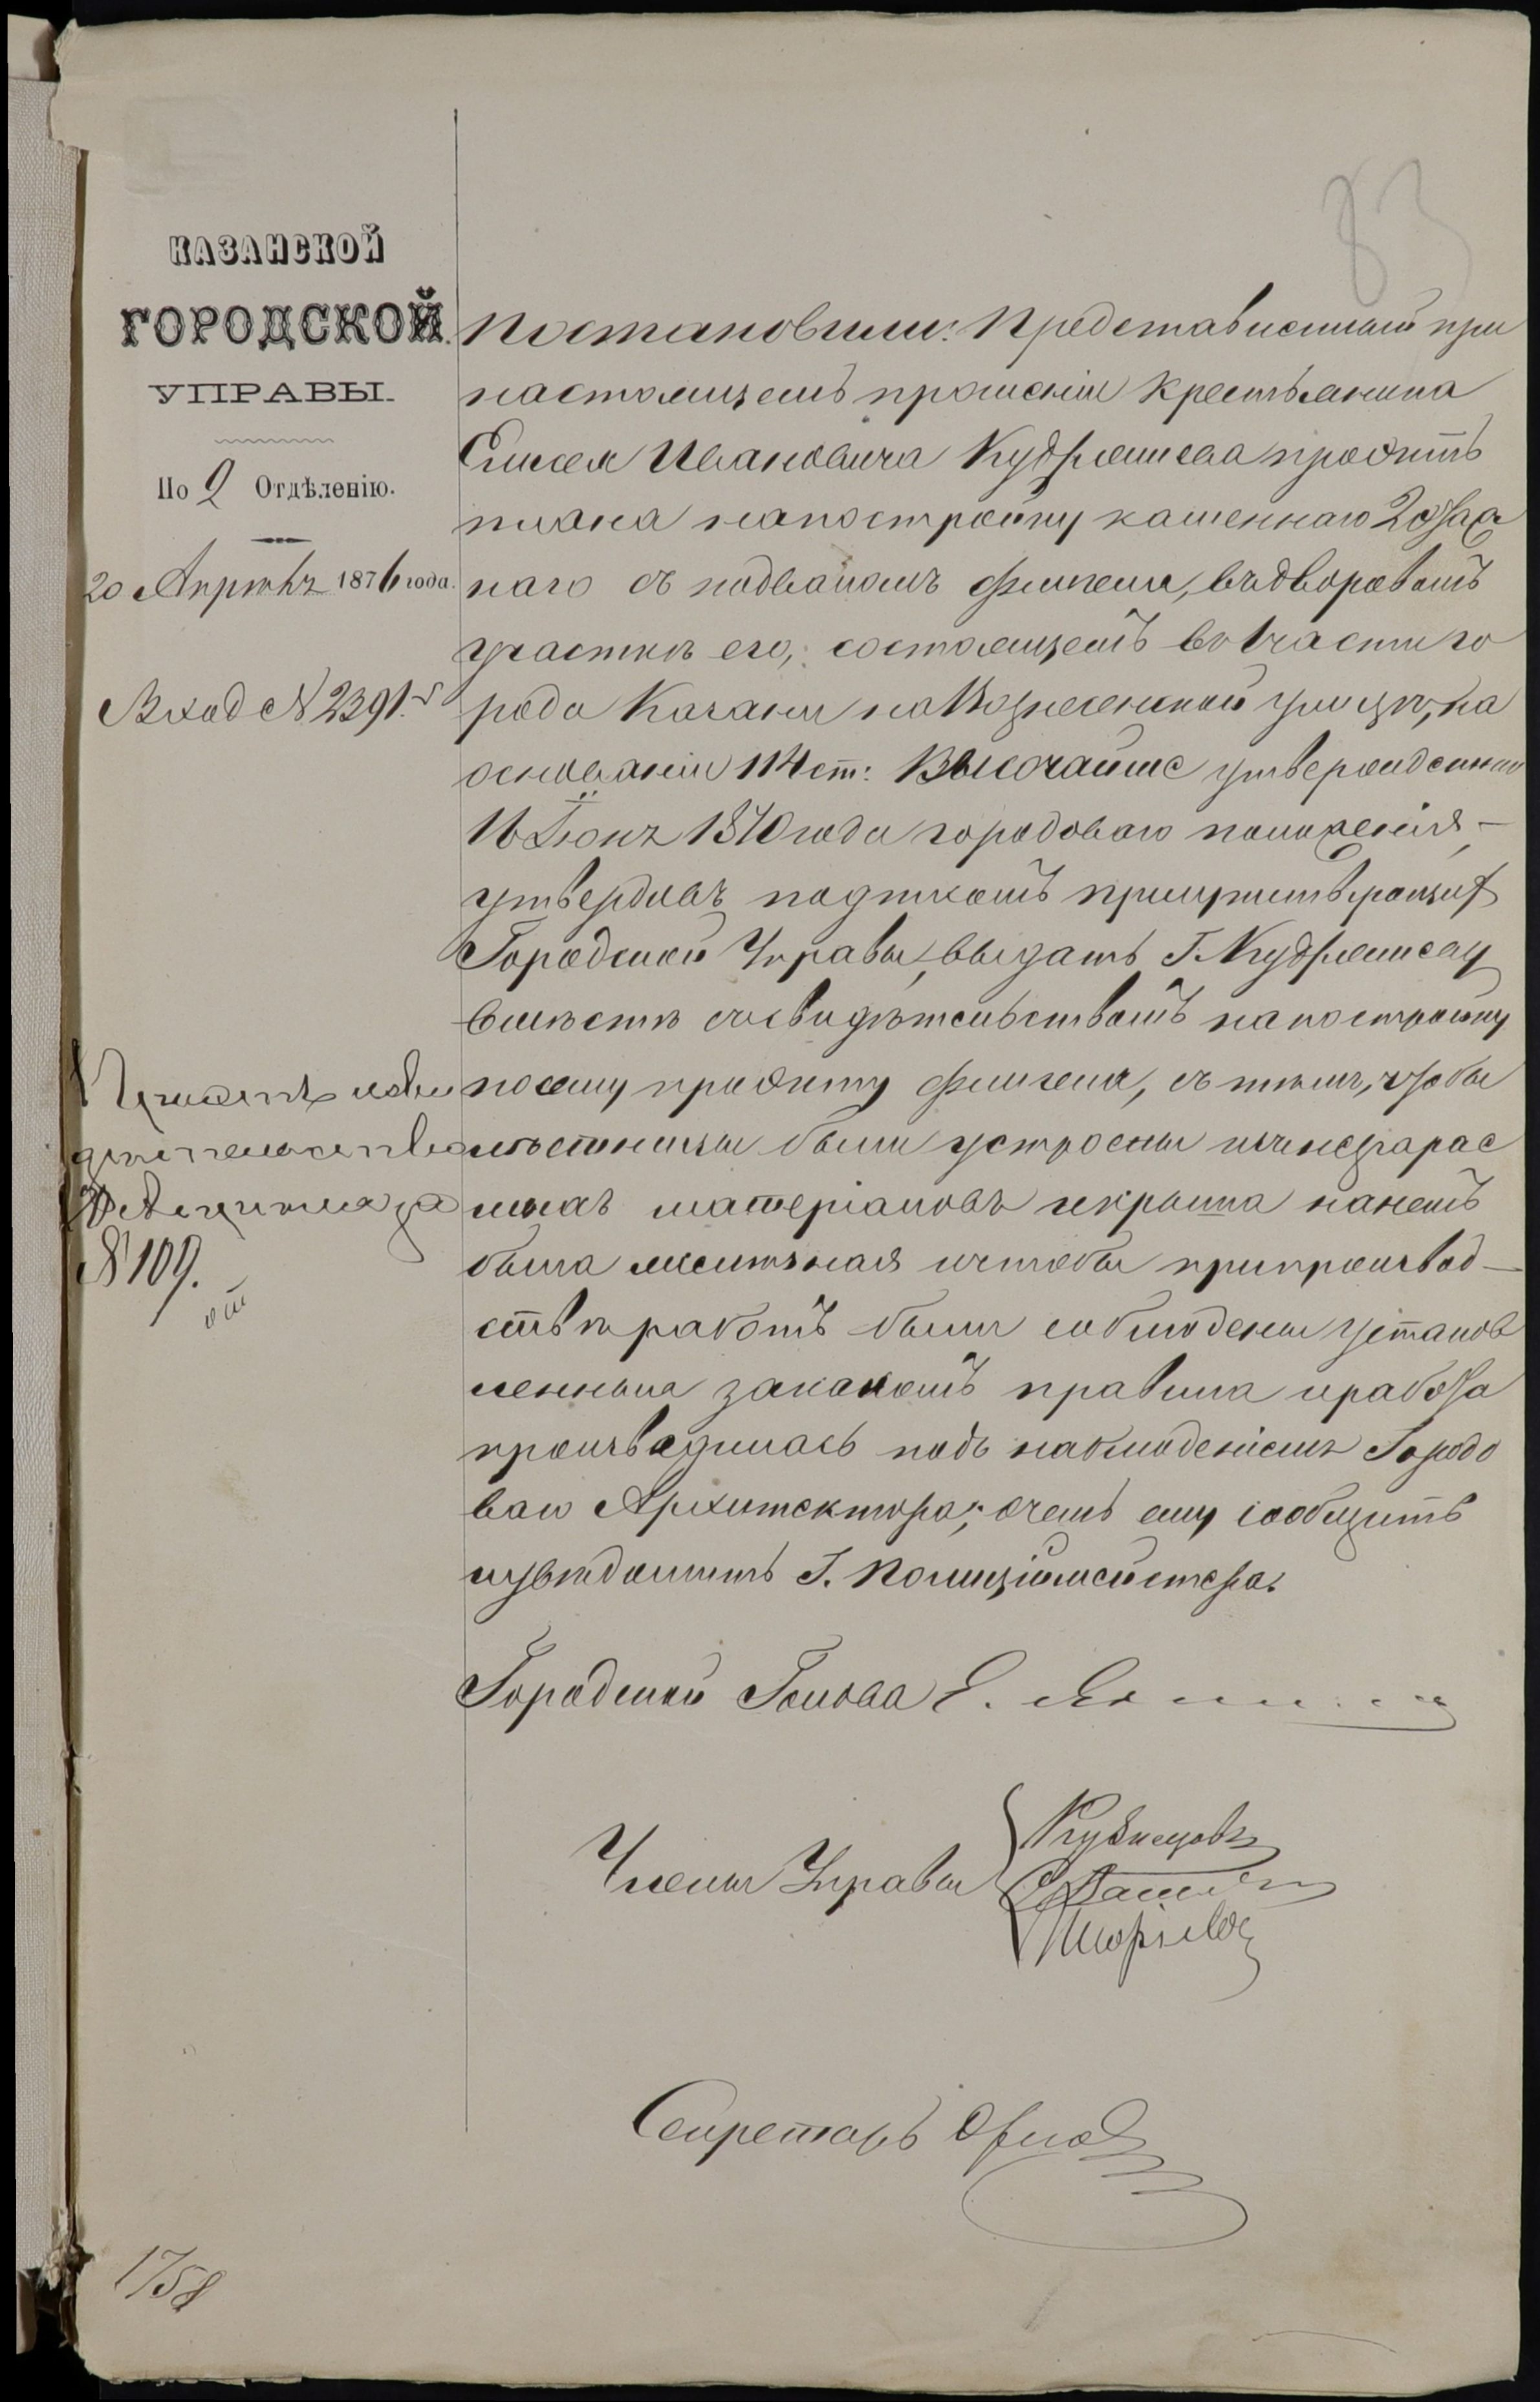 83
КАЗАНСКОЙ
ГОРОДСКОЙ
УПРАВЫ.
По 2 Отдѣленію.
20 Апрѣля 1876 года.
Вход №2391.
Постановили: Представленный при
настоящемъ прошеніи крестьянина
Елисея Ивановича Кудряшева проэктъ
плана на постройку каменнаго 2хъэтаж
наго съ подваломъ флигеля, въ дворовомъ
участкѣ его, состоящемъ во 1 части го
рода Казани на Вознесенской улицѣ, на
основаніи 114 ст: Высочайше утвержденнаго
16 Іюня 1870 года городоваго положенія, –
утвердивъ подписомъ присутствующихъ
Городской Управы, выдать Г. Кудряшеву
вмѣстѣ съ свидѣтельствомъ на постройку
по сему проэкту флигеля, съ тѣмъ, чтобы
лѣстницы были устроены изъ несгарае
мыхъ матеріаловъ и крыша на немъ
была желѣзная и чтобы при производ–
ствѣ работъ были соблюдены установ
ленныя закономъ правила и работа
производилась подъ наблюденіемъ Городо
ваго Архитектора; о чемъ ему сообщить
и увѣдомить Г. Полиціймейстера.
за
№ 109.
Городской Голова Е.
Члены Управы
Кузнецовъ
Секретарь Орловъ
1758